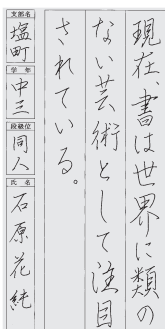 現在、書は世界に類の
ない芸術として注目
されている。
支部名
塩町
学年
中三
段級位
同人
氏名
石原花純